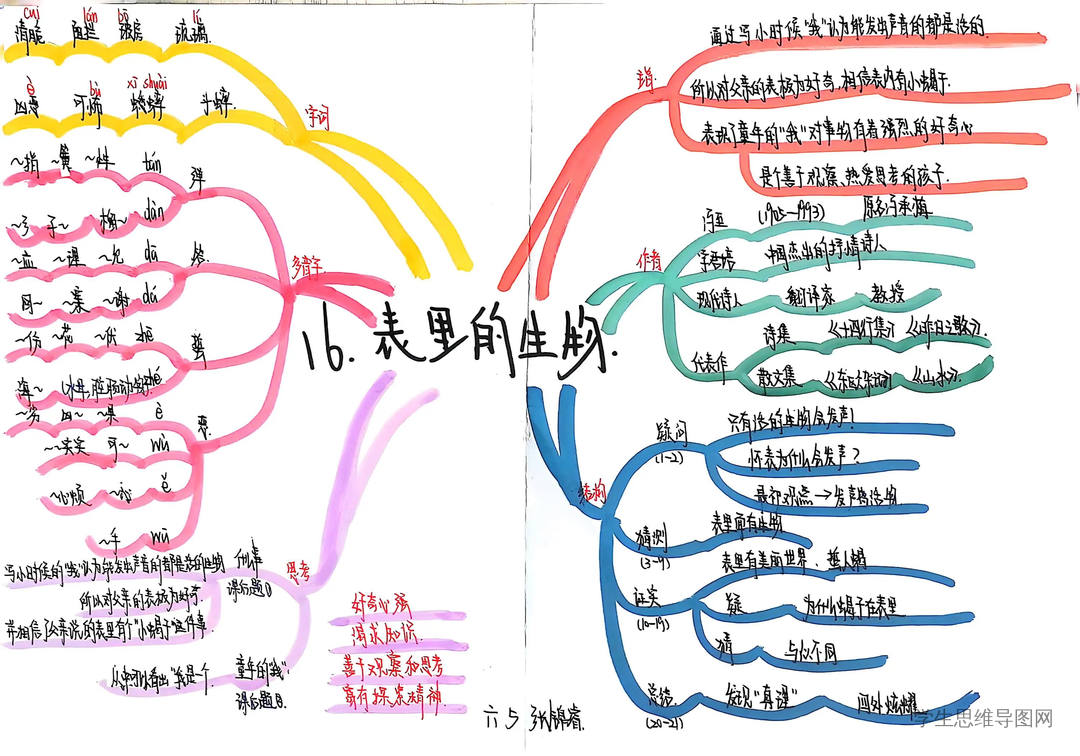 16.表里的生物.
字词
cuì lán bō lí
清脆 阻拦 玻璃
è bù xī shuài
凶恶 可怖 蟋蟀 斗蟀.
多音字
弹
tán ~指 ~簧 ~性
dàn ~弓 ~子 枪~
答
dā ~应 ~理 ~允
dá 回~ ~案 ~谢
蜇
zhē
zhé 海~
恶
è ~劣 凶~ ~果
wù 可~
ě ~心
wū ~乎
思考
什么事
课后题①
写小时候的"我"认为能发出声音的都是活的生物
所以对父亲的表极为好奇.
并相信了父亲说的表里有个"小蝎子"这件事.
童年的"我".
课后题②
从中可以看出"我是个
好奇心强
渴求知识.
善于观察和思考
富有探索精神.
主旨
通过写小时候"我"认为能发出声音的都是活的.
所以对父亲的表极为好奇,相信表内有小蝎子.
表现了童年的"我"对事物有着强烈的好奇心
是个善于观察、热爱思考的孩子.
作者
冯至 (1905—1993) 原名冯承植
字君培 中国杰出的抒情诗人
现代诗人 翻译家 教授
代表作
诗集 《十四行集》《昨日之歌》.
散文集 《东欧杂记》《山水》.
结构
疑问
(1-2)
只有活的生物会发声!
怀表为什么会发声?
最初观点→发声皆活物.
猜测
(3-9)
表里面有生物
证实
(10-19)
表里有美丽世界、
疑 为什么蝎子在表里
猜
总结
(20-21)
发现"真谛" 四处炫耀
六5 张锦睿.
学生思维导图网